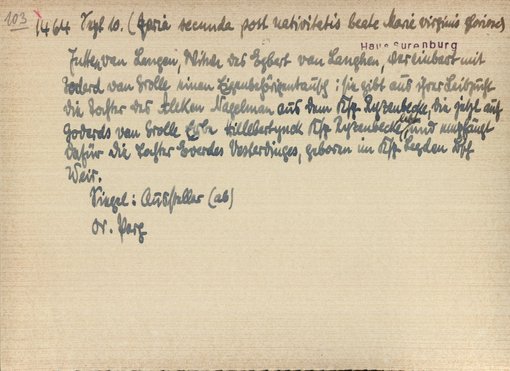 103
1464 Sept 10. (feria secunda post nativitatis beate Marie virginis gloriose)
Haus Surenburg
Jutte van Langen, Witwe des Egbert van Langhen, vereinbart mit
Goderd van Grolle einen Eigenbehörigentausch: sie gibt aus ihrer Leibzucht
die Tochter des Aleken Nagelman aus dem Ksp. Rysenbecke, die jetzt auf
Goderds van Grolle Erbe Ksp. Rysenbecke und empfängt
dafür die Tochter Everdes Vesterdinges, geboren im Ksp. Legden Bsch.
Weir.
Siegel: Aussteller (ab)
Or. Perg